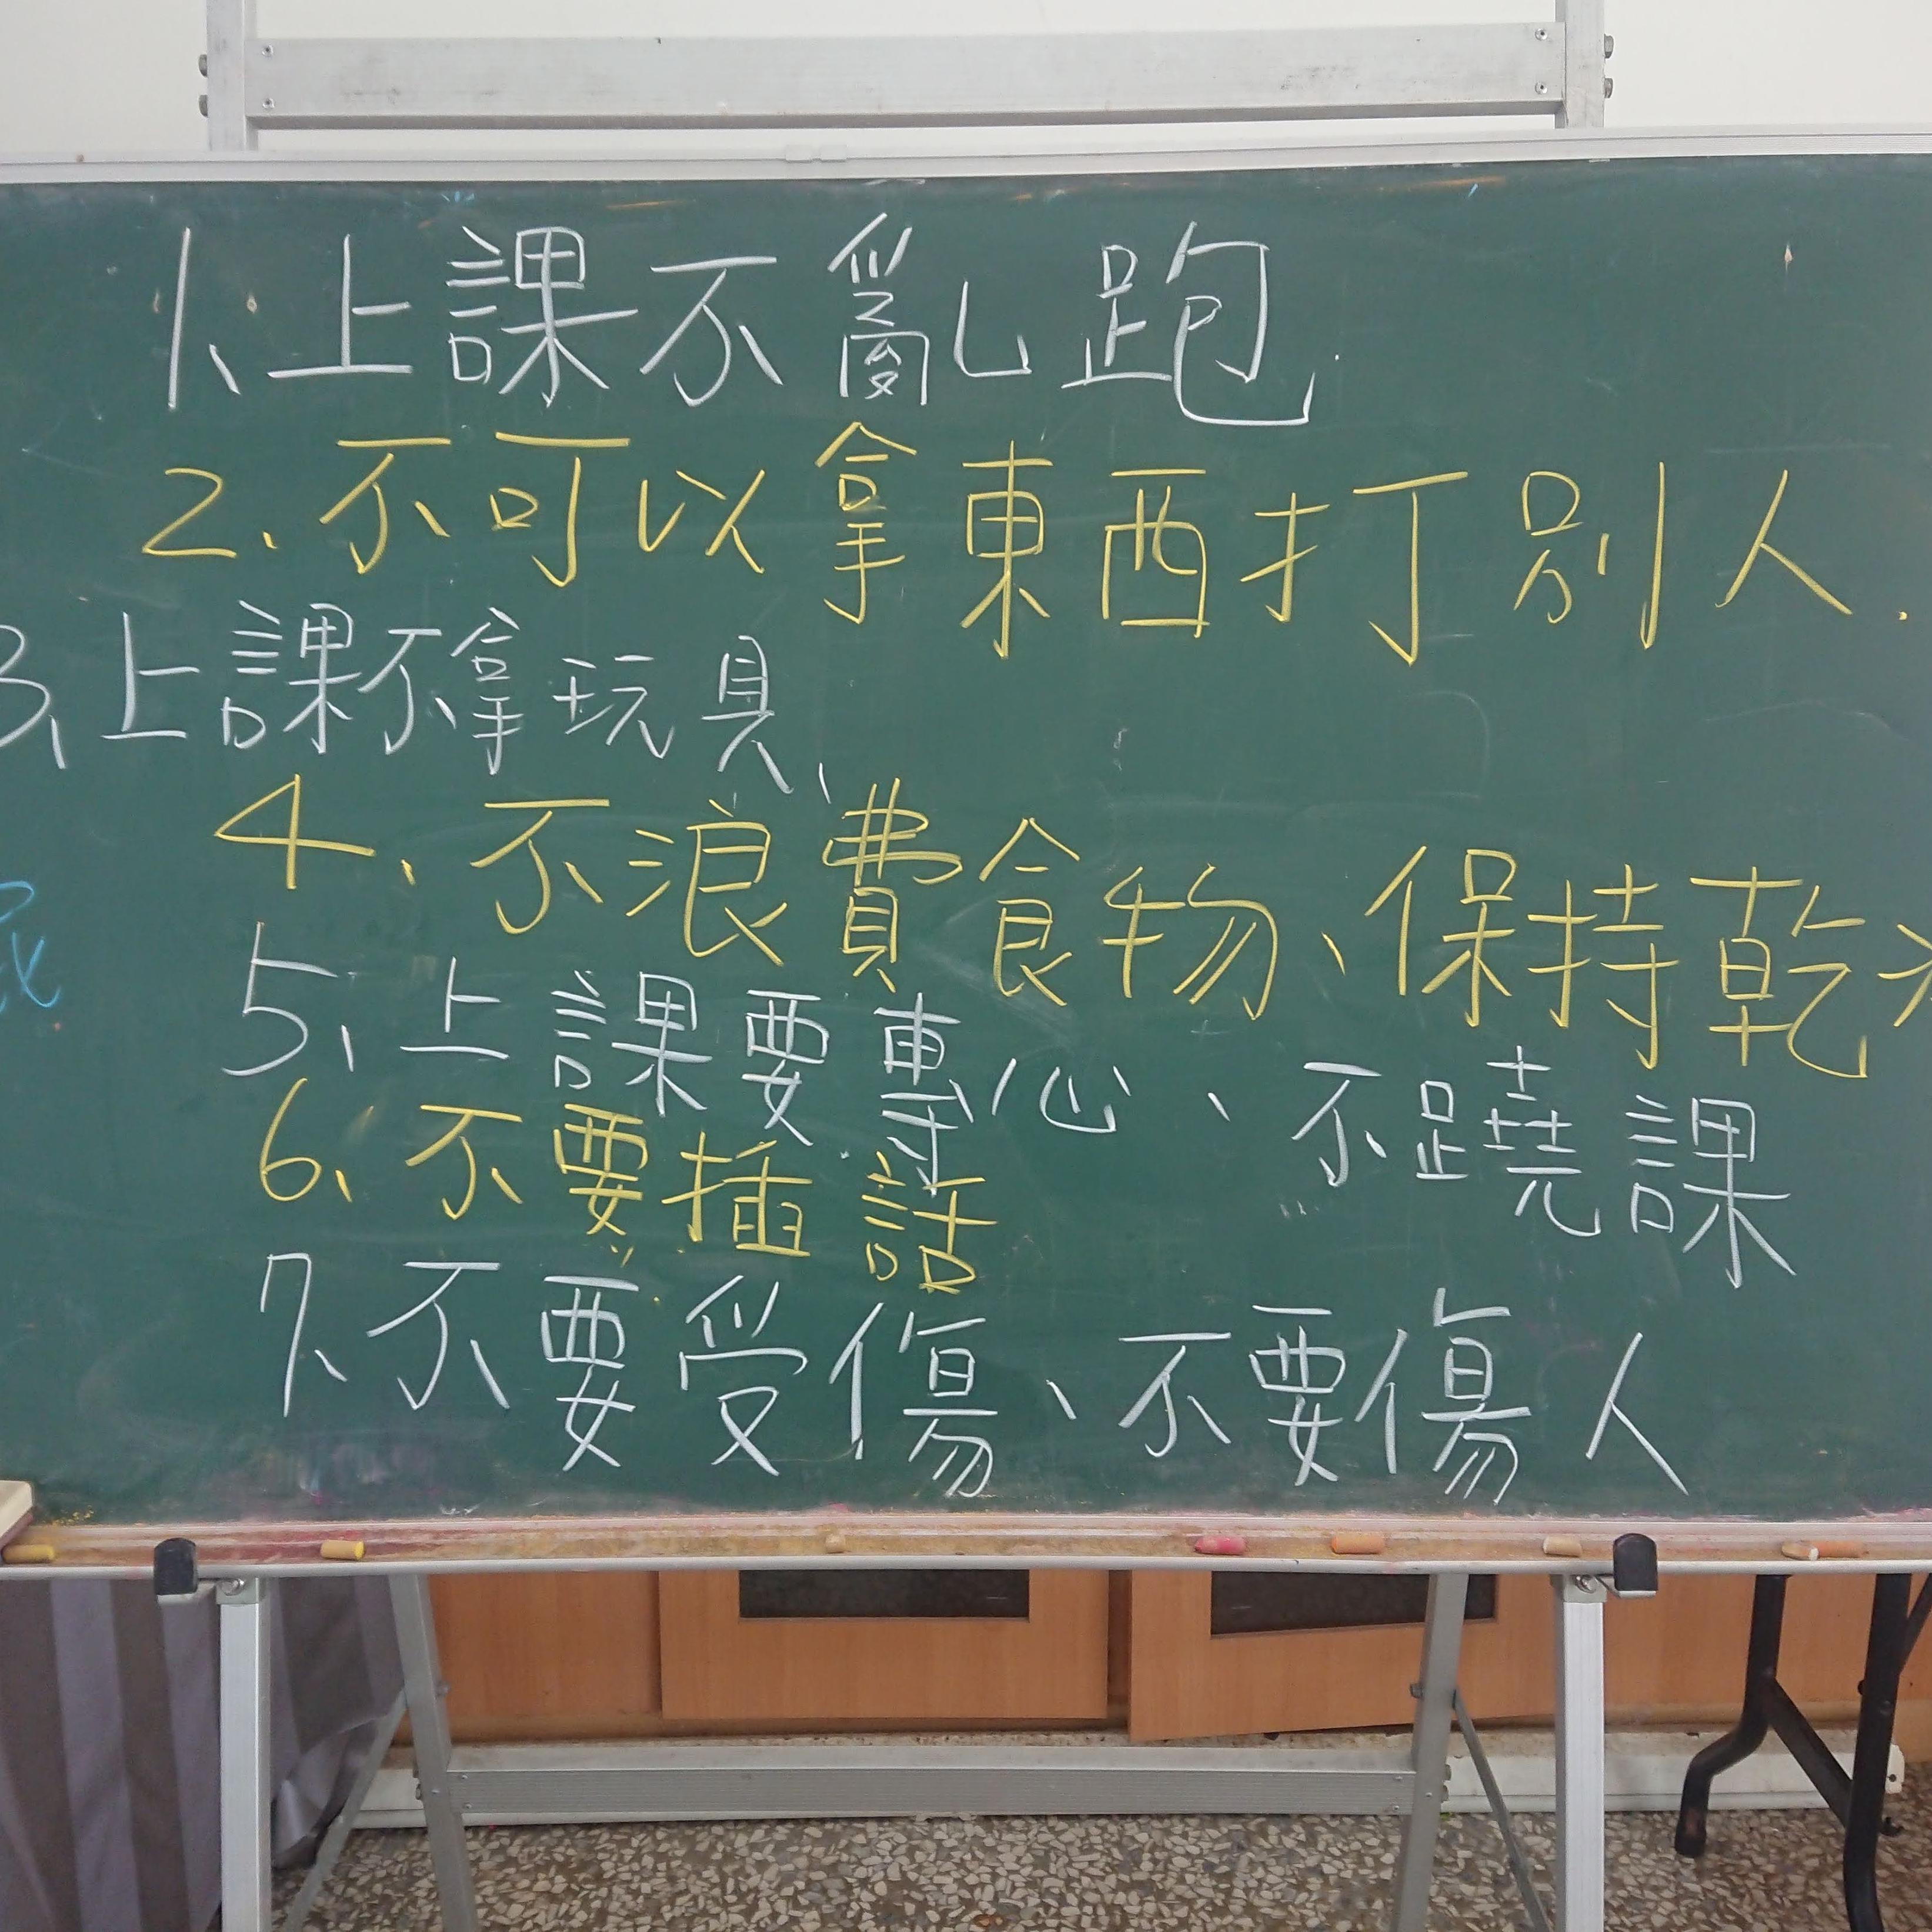 1、上課不亂跑.
2.不可以拿東西打別人.
3、上課不拿玩具、
4、不浪費食物、保持乾
5、上課要專心、不蹺課
6、不要插話
7、不要受傷、不要傷人